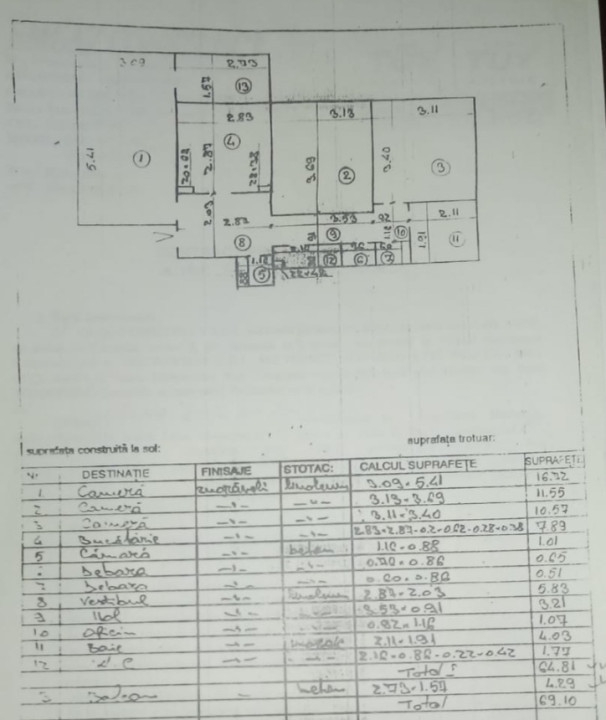 3.09
2.73
1.57
13
2.83
3.13
3.11
5.41
1
20×62
2.87
4
28×38
3.69
2
3.40
3
2.03
2.87
3.53
92
2.11
8
9
91
1.16
10
1.91
11
88
5
12
6
7
22×42
suprafața construită la sol:
suprafața trotuar:
Nr DESTINAȚIE FINISAJE STOTAC: CALCUL SUPRAFEȚE SUPRAFEȚE
1 Cameră linoleum 3.09×5.41 16.72
2 Cameră -"- -"- 3.13×3.69 11.55
3 Cameră -"- -"- 3.11×3.40 10.57
4 Bucătărie -"- -"- 2.83×2.87-0.2×0.62-0.28×0.38 7.89
5 Cămară -"- beton 1.16×0.88 1.01
Debara -"- -"- 0.76×0.86 0.65
7 Debara -"- -"- 0.60×0.86 0.51
8 Vestibul -"- linoleum 2.87×2.03 5.83
9 Hol -"- -"- 3.53×0.91 3.21
10 Oficiu -"- -"- 0.92×1.16 1.07
11 Baie -"- mozaic 2.11×1.91 4.03
12 -"- -"- 2.16×0.86-0.22×0.42 1.77
Total 64.81
3 Balcon - beton 2.73×1.57 4.29
Total 69.10